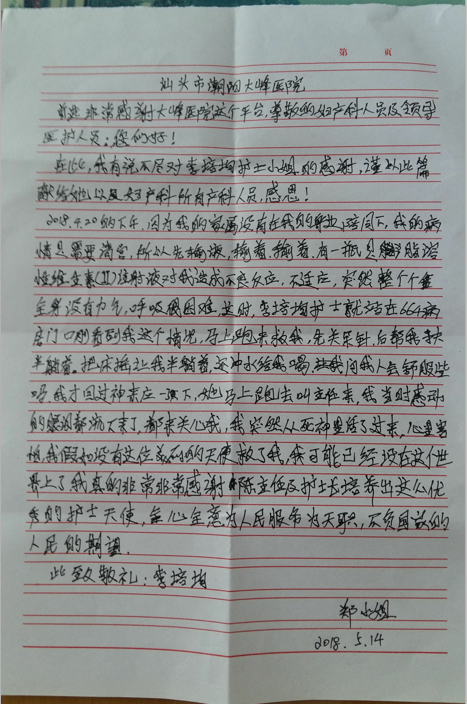 第 页
汕头市潮阳大峰医院
首先非常感谢大峰医院这个平台,尊敬的妇产科人员及领导
医护人员:您们好!
在此,我有说不尽对李培均护士小姐的感谢,谨以此篇
献给她以及妇产科所有产科人员,感恩!
2018.4.20的下午,因为我的家属没有在我的身边陪同下,我的病
情是需要清宫,所以先输液,输着输着,有一瓶是脂溶
性维生素(II)注射液对我造成不良反应,不适应,突然整个人
全身没有力气,呼吸很困难,这时,李培均护士就站在664病
房门口刚看到我这个情况,马上跑来救我,先关吊针,后帮我扶
半躺着.把床摇让我半躺着,还冲水给我喝,让我问我人舒服些
吗,我才回过神来应一下,她马上跑去叫主任来,我当时感动
的眼泪都流下来了,都来关心我,我突然从死神里活了过来,心里害
怕,我假如没有这位美丽的天使救了我,我可能已经没在这个世
界上了我真的非常非常感谢陈主任及护士长培养出这么优
秀的护士天使,全心全意为人民服务为天职,不负国家的
人民的期望.
此致敬礼:李培均
郑小姐
2018.5.14